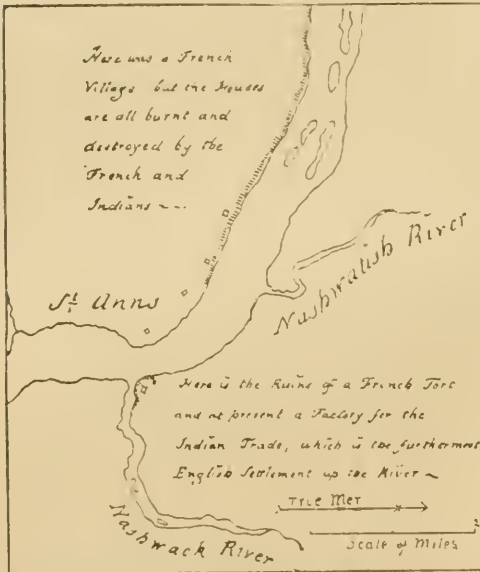 Here was a French
Village but the Houses
are all burnt and
destroyed by the
French and
Indians ~ ~
Nashwatish River
St. Anns
Here is the Ruins of a French Fort
and at present a Factory for the
Indian Trade, which is the furthermost
English Settlement up the River ~
True Mer
Scale of Miles
Nashwack River